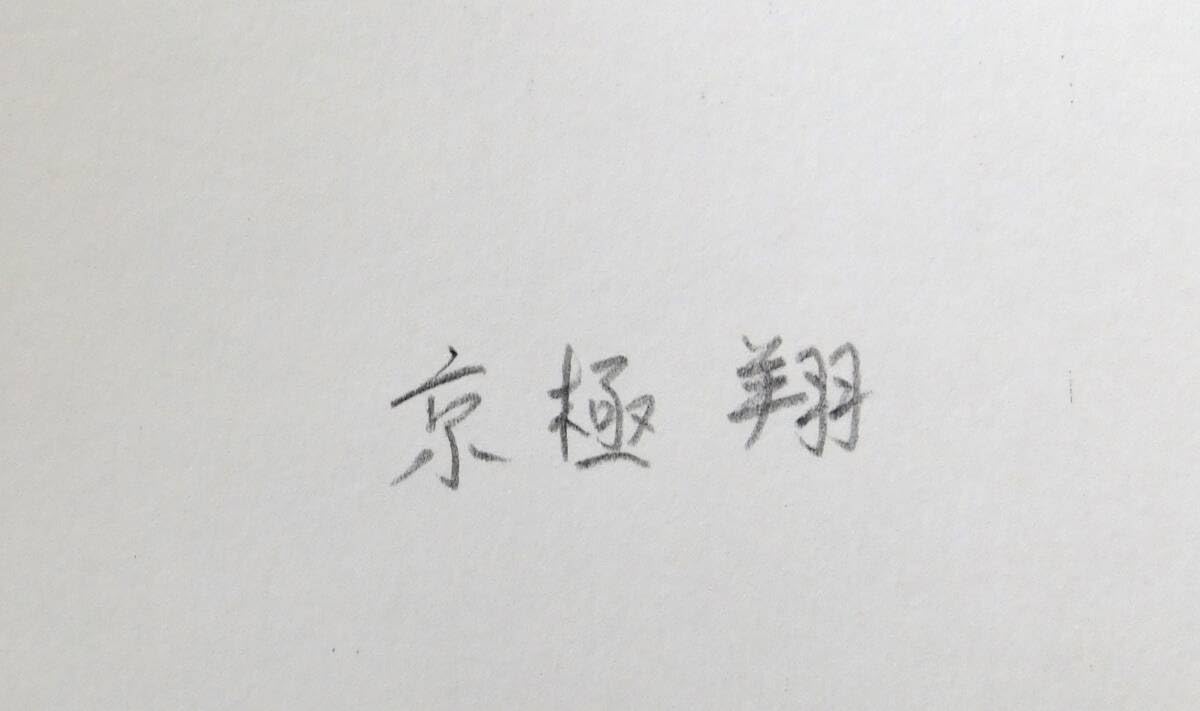 京極翔